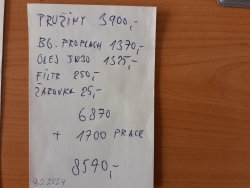 PRUŽINY 3900,-
BG. PROPLACH 1370,-
OLEJ 5W30 1325,-
FILTR 250,-
ŽÁROVKA 25,-
6870
+ 1700 PRÁCE
8570,-
9.2.2024